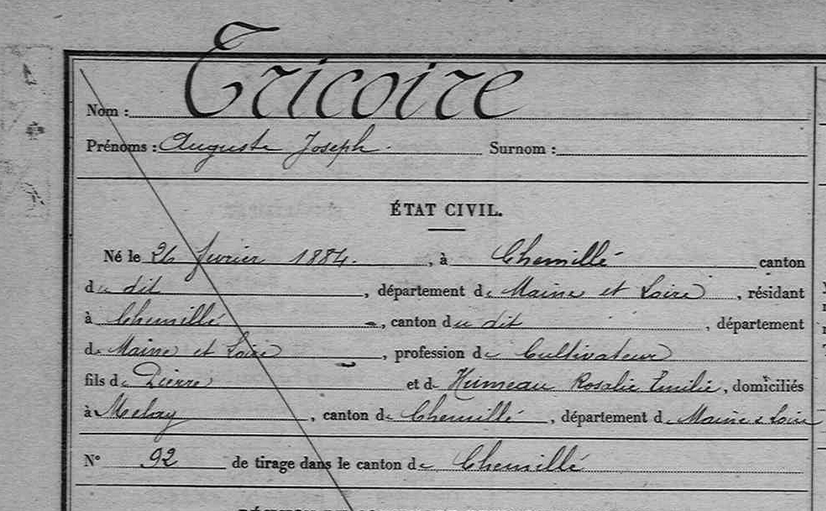 Nom : Tricoire
Prénoms : Auguste Joseph. Surnom :
ÉTAT CIVIL.
Né le 26 février 1884. , à Chemillé canton
du dit , département de Maine et Loire , résidant
à Chemillé , canton du dit , département
de Maine et Loire , profession de Cultivateur
fils de Pierre et de Humeau Rosalie Emilie , domiciliés
à Melay , canton de Chemillé , département d Maine & Loire
N° 92 de tirage dans le canton de Chemillé